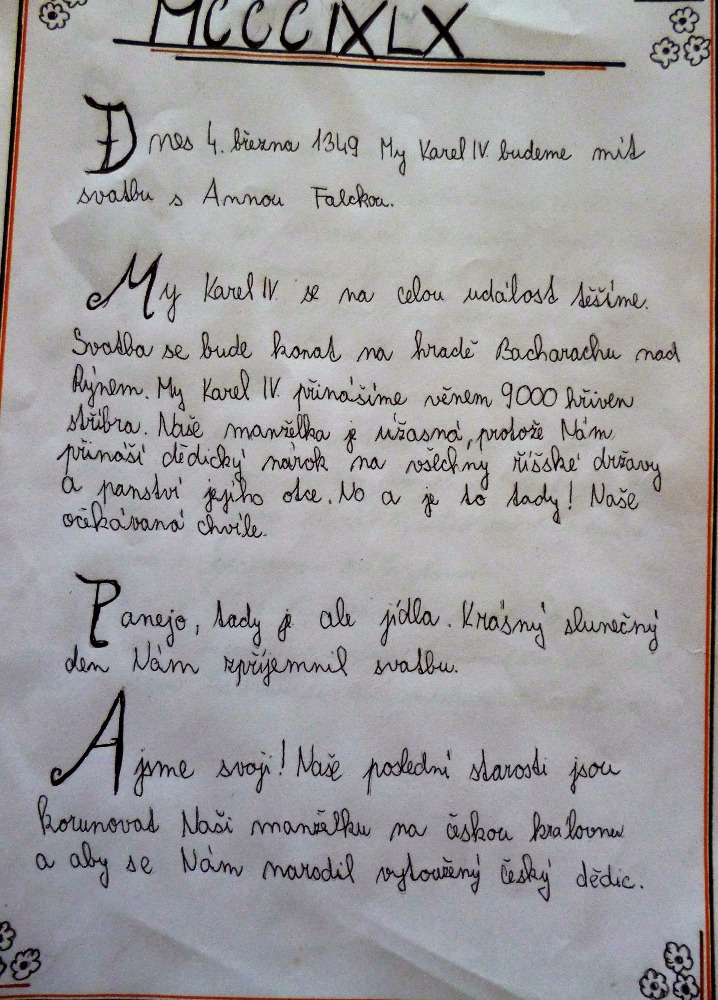 MCCCIXLX
Dnes 4. března 1349 My Karel IV. budeme mít
svatbu s Annou Falckou.
My Karel IV. se na celou událost těšíme.
Svatba se bude konat na hradě Bacharachu nad
Rýnem. My Karel IV. přinášíme věnem 9000 hřiven
stříbra. Naše manželka je úžasná, protože Nám
přináší dědický nárok na všechny říšské državy
a panství jejího otce. No a je to tady! Naše
očekávaná chvíle.
Panejo, tady je ale jídla. Krásný slunečný
den Nám zpříjemnil svatbu.
A jsme svoji! Naše poslední starosti jsou
korunovat Naši manželku na českou kralovnu
a aby se Nám narodil vytoužený český dědic.